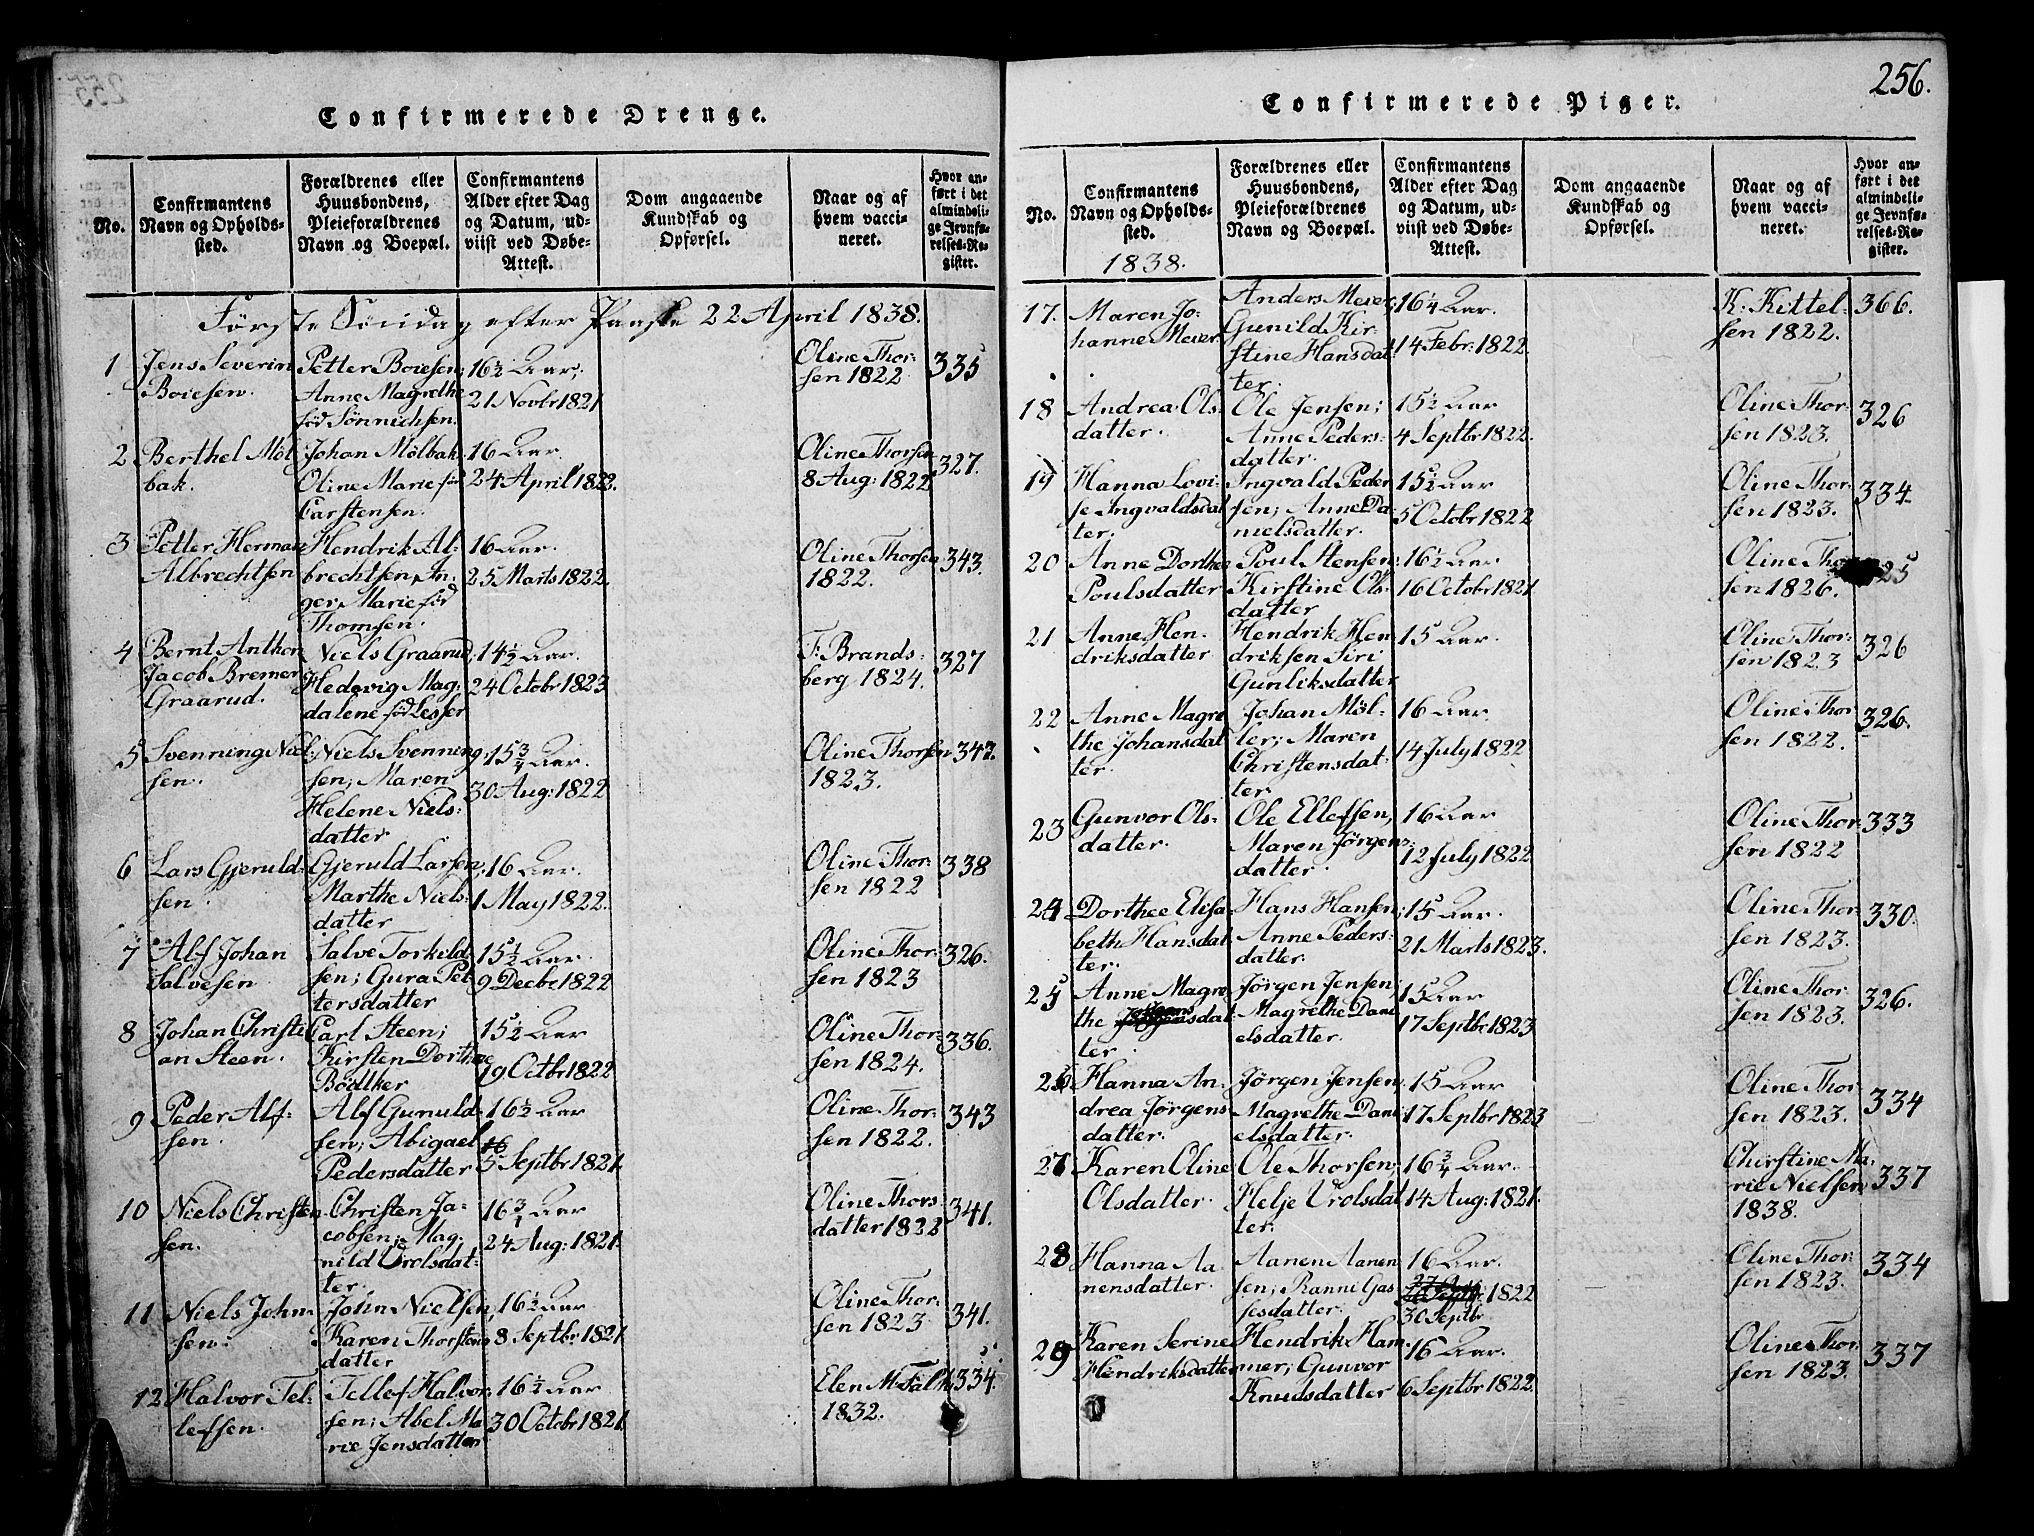 256.
Confirmerede Drenge.
No.
Confirmantens
Navn og Opholds-
sted.
Forældrenes eller
Huusbondens,
Pleieforældrenes
Navn og Boepæl.
Confirmantens
Alder efter Dag
og Datum, ud-
viist ved Døbe-
Attest.
Dom angaaende
Kundskab og
Opførsel.
Naar og af
hvem vacci-
neret.
Hvor an-
ført i det
almindeli-
ge Jevnfø-
relses-Re-
gister.
Første Søndag efter Paaske 22 April 1838.
1
Jens Severin
Boiesen.
Petter Boiesen;
Anne Magrethe
föd Sönnichsen.
16½ Aar;
21 Novbr 1821
Oline Thor-
sen 1822
335
2
Berthel Möl
bak.
Johan Mölbak
Oline Marie föd
Carstensen.
16 Aar.
24 April 1822.
Oline Thorsen
8 Aug: 1822
327.
3
Petter Herman
Albrechtsen
Hendrik Al-
brechtsen, In-
ger Marie föd
Thomsen.
16 Aar.
25 Marts 1822.
Oline Thorsen
1822.
343.
4
Bernt Anthon
Jacob Bremer
Graarud.
Niels Graarud,
Hedevig Mag-
dalene föd Lesser
14½ Aar.
24 Octobr 1823
F. Brands-
berg 1824.
327
5
Svenning Niel-
sen.
Niels Svenning
sen; Maren
Helene Niels-
datter
15¾ Aar.
30 Aug: 1822
Oline Thorsen
1823.
347.
6
Lars Gjeruld-
sen.
Gjeruld Larsen;
Marthe Niels-
datter
16 Aar.
1 May 1822.
Oline Thor-
sen 1822
338
7
Alf Johan
Salvesen
Salve Torkild-
sen; Gura Pet-
tersdatter
15½ Aar.
9 Decbr 1822
Oline Thor-
sen 1823
326.
8
Johan Christi-
an Steen.
Carl Steen;
Kirsten Dorthee
Bödtker
15½ Aar
19 Octbr 1822
Oline Thor-
sen 1824.
336.
9
Peder Alf-
sen.
Alf Gunuld-
sen; Abigael
Pedersdatter
16½ Aar
5 Septbr 1821.
Oline Thor-
sen 1822.
343
10
Niels Christen
sen.
Christen Ja-
cobsen; Mag-
nild Vrolsdat-
ter.
16¾ Aar
24 Aug: 1821.
Oline Thors
datter 1822
341.
11
Niels John-
sen.
John Nielsen,
Karen Thorstens
datter
16½ Aar
8 Septbr 1821.
Oline Thor-
sen 1823
341.
12
Halvor Tel-
lefsen.
Tellef Halvor-
sen; Abel Ma
rie Jensdatter
16½ Aar
30 Octobr 1821.
Elen M. Falk
1832.
334.
Confirmerede Piger.
No.
Confirmantens
Navn og Opholds-
sted.
1838.
Forældrenes eller
Huusbondens,
Pleieforældrenes
Navn og Boepæl.
Confirmantens
Alder efter Dag
og Datum, ud-
viist ved Døbe-
Attest.
Dom angaaende
Kundskab og
Opførsel.
Naar og af
hvem vacci-
neret.
Hvor an-
ført i det
almindeli-
ge Jevnfø-
relses-Re-
gister.
17.
Maren Jo-
hanne Meier.
Anders Meier;
Gunild Kir-
stine Hansdat-
ter.
16¼ Aar.
14 Febr: 1822.
K. Kittel-
sen 1822.
366.
18
Andrea Ols-
datter.
Ole Jensen;
Anne Peders-
datter.
15½ Aar
4 Septbr 1822.
Oline Thor-
sen 1823.
326
19
Hanna Lovi-
se Ingvaldsdat
ter.
Ingvald Peder
sen; Anne Da
nielsdatter.
15½ Aar
5 Octobr 1822
Oline Thor-
sen 1823.
334
20
Anne Dorthee
Poulsdatter
Poul Stensen;
Kirstine Ols-
datter
16½ Aar
16 Octobr 1821
Oline Thor
sen 1826.
25
21
Anne Hen-
driksdatter
Hendrik Hen
driksen Siri
Gunliksdatter
15 Aar.
Oline Thor-
sen 1823
326
22
Anne Magre
the Johansdat
ter.
Johan Möl-
ler; Maren
Christensdat-
ter.
16 Aar.
14 July 1822
Oline Thor
sen 1822.
326.
23
Gunvor Ols-
datter.
Ole Ellefsen,
Maren Jörgens-
datter.
16 Aar
12 July 1822
Oline Thor-
sen 1822
333
24
Dorthee Elisa
beth Hansdat-
ter.
Hans Hansen;
Anne Peders-
datter.
15 Aar.
21 Marts 1823.
Oline Thor-
sen 1823.
330.
25
Anne Magre
the Jörgensdat-
ter.
Jörgen Jensen;
Magrethe Dani
elsdatter.
15 Aar
17 Septbr 1823
Oline Thor
sen 1823.
326.
26
Hanna An-
drea Jörgens
datter.
Jörgen Jensen
Magrethe Dani
elsdatter.
15 Aar
17 Septbr 1823
Oline Thor
sen 1823.
334
27
Karen Oline
Olsdatter.
Ole Thorsen,
Helje Vrolsdat
ter.
16¾ Aar.
14 Aug: 1821.
Chirstine Ma-
rie Nielsen
1838.
337
28
Hanna Aa-
nensdatter.
Aanen Aanen
sen; Ranni Gas
sesdatter.
16 Aar.
1822
30 Septbr
Oline Thor-
sen 1823.
334
29
Karen Serine
Hendriksdatter
Hendrik Ham
mer; Gunvor
Knudsdatter
16 Aar.
6 Septbr 1822.
Oline Thor
sen 1823.
337